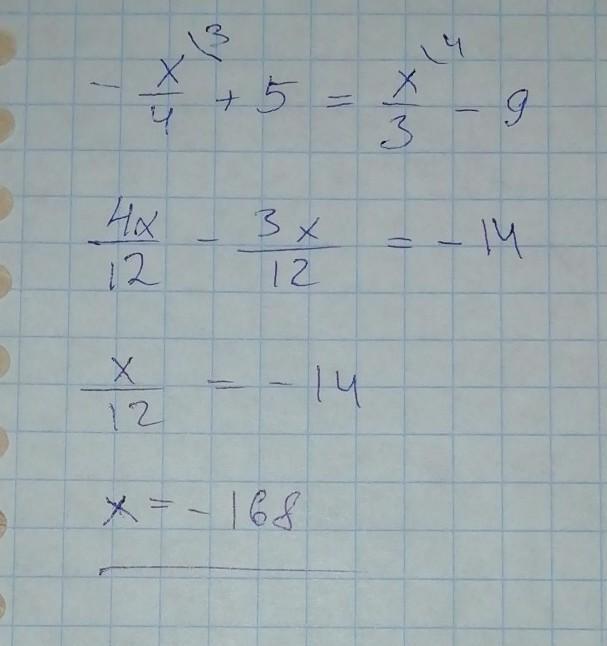 - x/4 \3 + 5 = x/3 \4 - 9
4x/12 - 3x/12 = - 14
x/12 = - 14
x = - 168